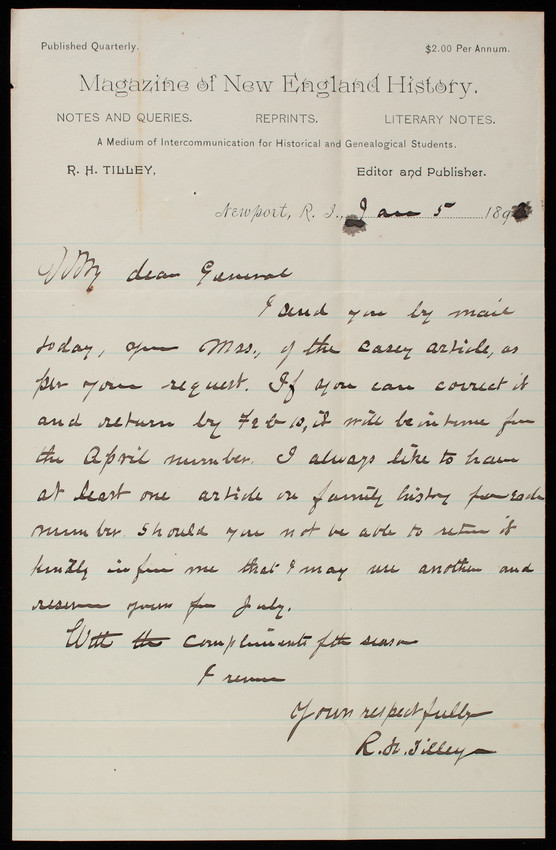 Published Quarterly. $2.00 Per Annum.
Magazine of New England History.
NOTES AND QUERIES. REPRINTS. LITERARY NOTES.
A Medium of Intercommunication for Historical and Genealogical Students.
R. H. TILLEY, Editor and Publisher.
Newport, R. I., Jan 5 189
My dear General
I send you by mail
today, your Mss., of the Casey article, as
per your request. If you can correct it
and return by Feb 10, it will be in time for
the April number. I always like to have
at least one article on family history for Each
number. Should you not be able to return it
kindly inform me that I may use another and
reserve yours for July.
With the compliments of the season
I remain
Yours respectfully
R. H. Tilley